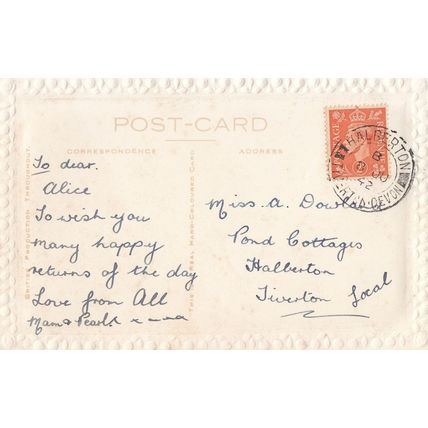 POST-CARD
CORRESPONDENCE
ADDRESS
To dear.
Alice
To wish you
many happy
returns of the day
Love from All
Mam & Pearl x
Miss. A.
Pond Cottages
Halberton
Tiverton Local
BRITISH PRODUCTION THROUGHOUT.
HALBERTON
TIVERTON. DEVON
42